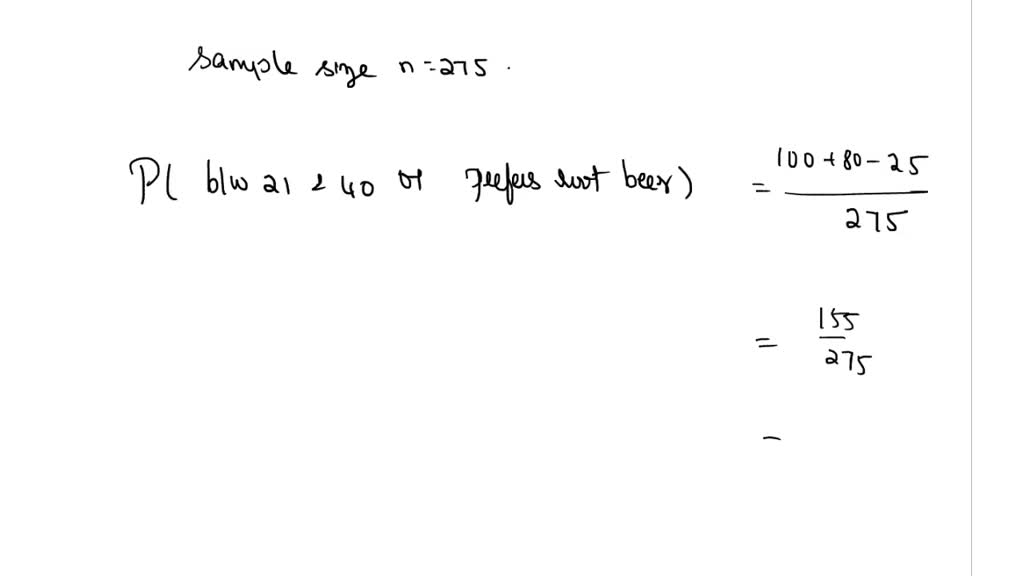 sample size n = 275.
P( b/w 21 & 40 or prefers root beer) = 100 + 80 - 25 / 275
= 155 / 275
=